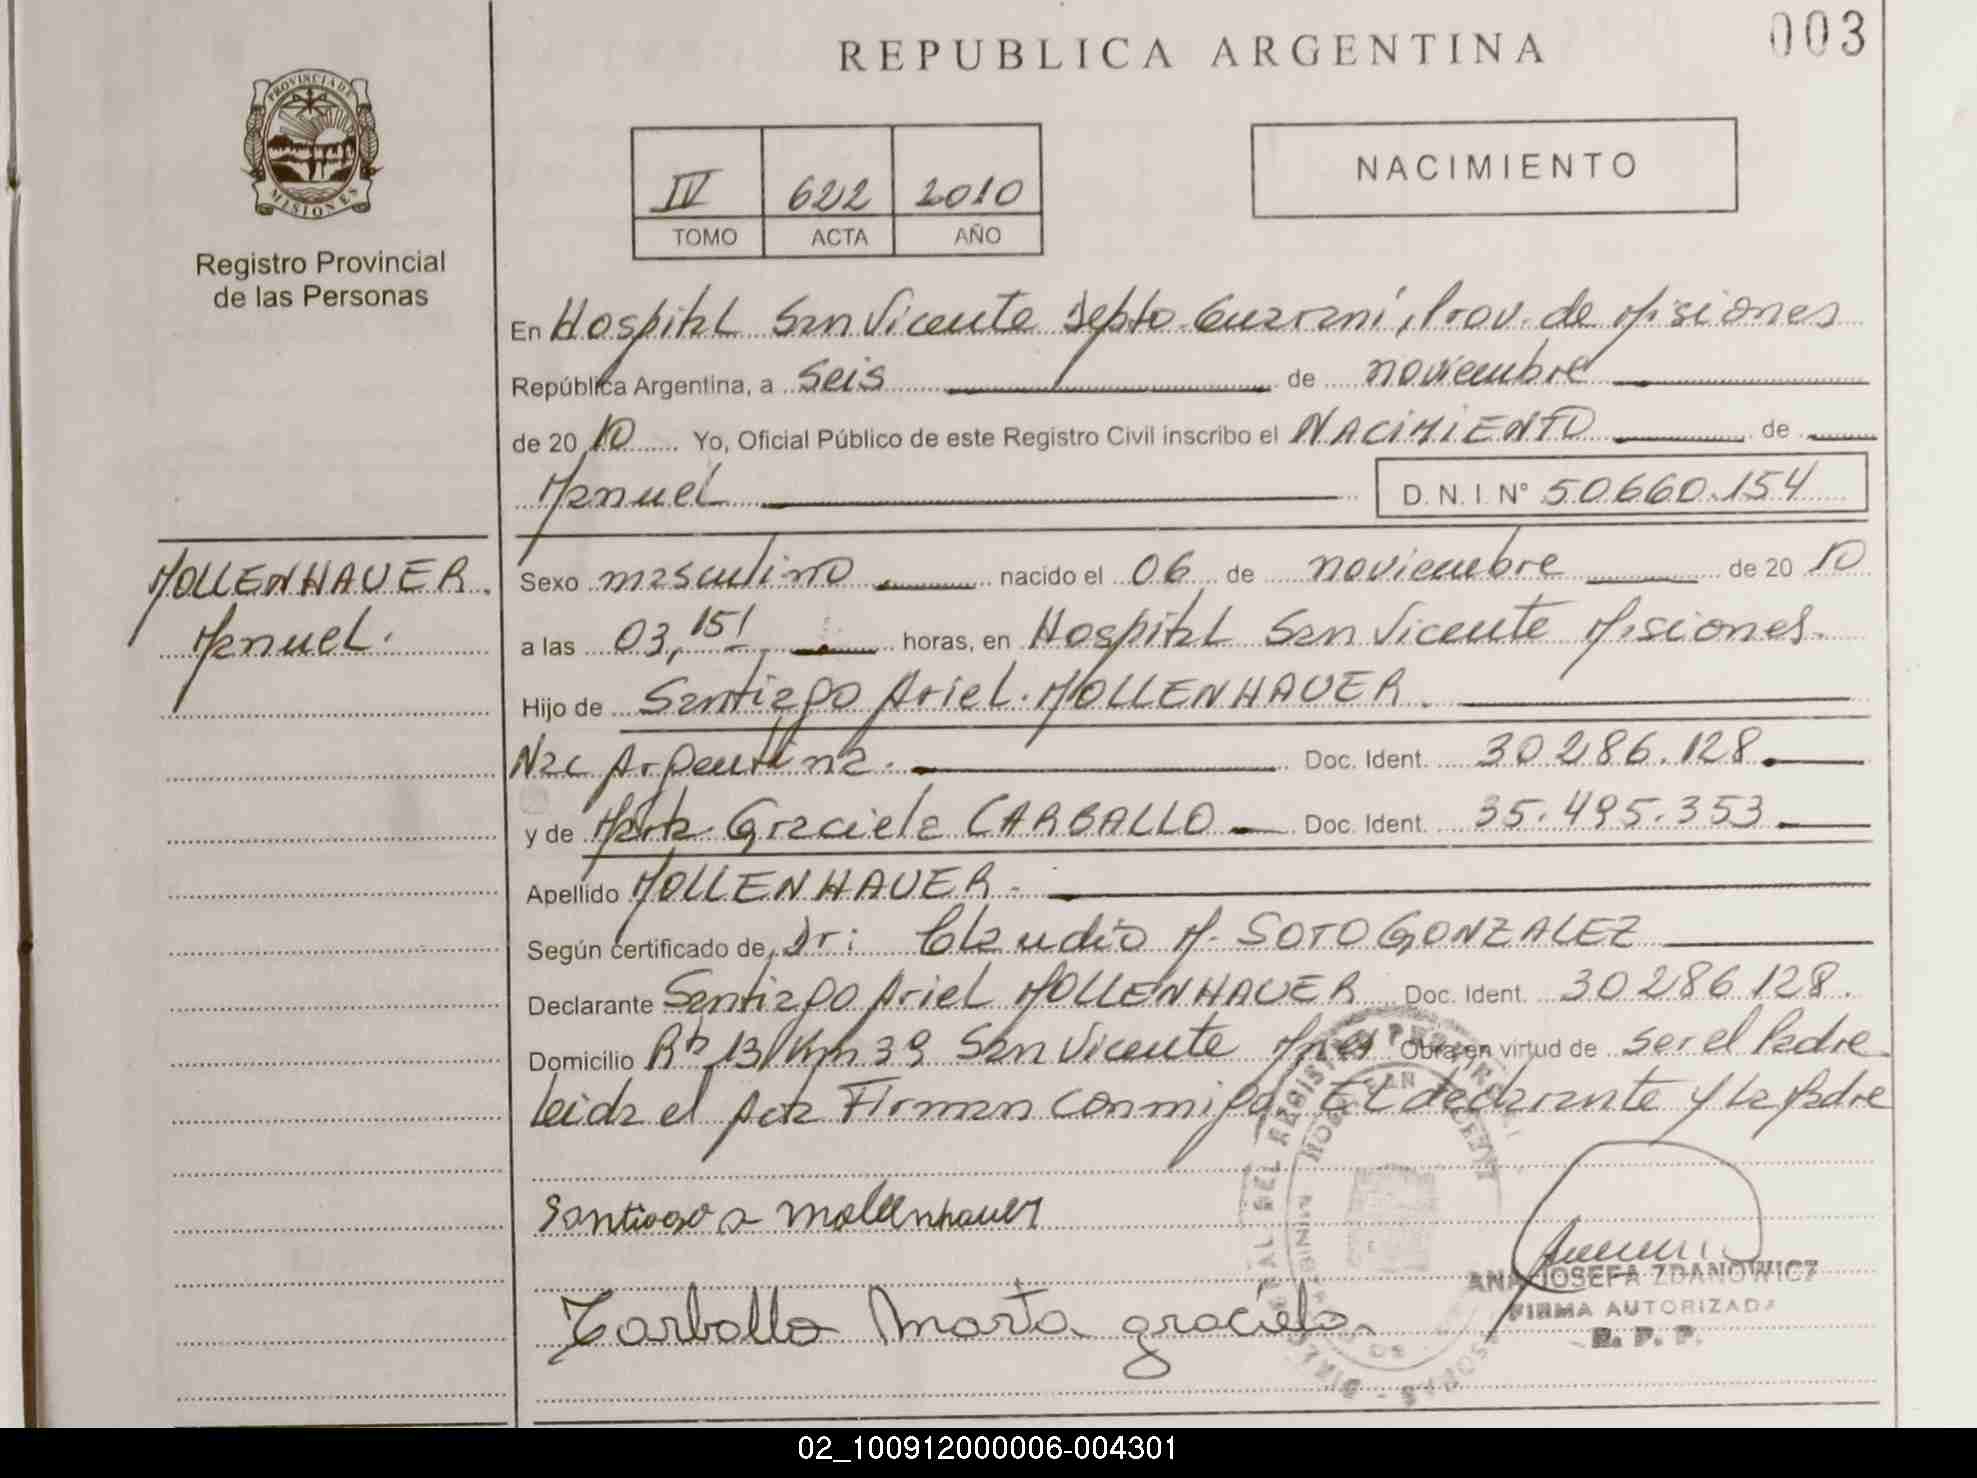 003
REPUBLICA ARGENTINA
PROVINCIA DE
MISIONES
Registro Provincial
de las Personas
IV 622 2010
TOMO ACTA AÑO
NACIMIENTO
En Hospital San Vicente Depto. Guaraní, Prov. de Misiones
República Argentina, a Seis de noviembre
de 2010 Yo, Oficial Público de este Registro Civil inscribo el NACIMIENTO de
Manuel D. N. I. N° 50.660.154
MOLLENHAUER.
Manuel.
Sexo masculino nacido el 06 de noviembre de 2010
a las 03,15 horas, en Hospital San Vicente Misiones.
Hijo de Santiago Ariel. MOLLENHAUER.
Nac Argentina. Doc. Ident. 30.286.128.
y de Marta Graciela CARBALLO Doc. Ident. 35.495.353
Apellido MOLLENHAUER.
Según certificado de, Dr: Claudio M. SOTO GONZALEZ
Declarante Santiago Ariel MOLLENHAUER Doc. Ident. 30286128.
Domicilio Rta 13 Km 39 San Vicente Mnes Obra en virtud de ser el Padre
Leida el Acta Firman conmigo El declarante y La Madre
Santiago a mollenhauer
ANA JOSEFA ZDANOWICZ
FIRMA AUTORIZADA
R. P. P.
Carballo Marta graciela
02_100912000006-004301